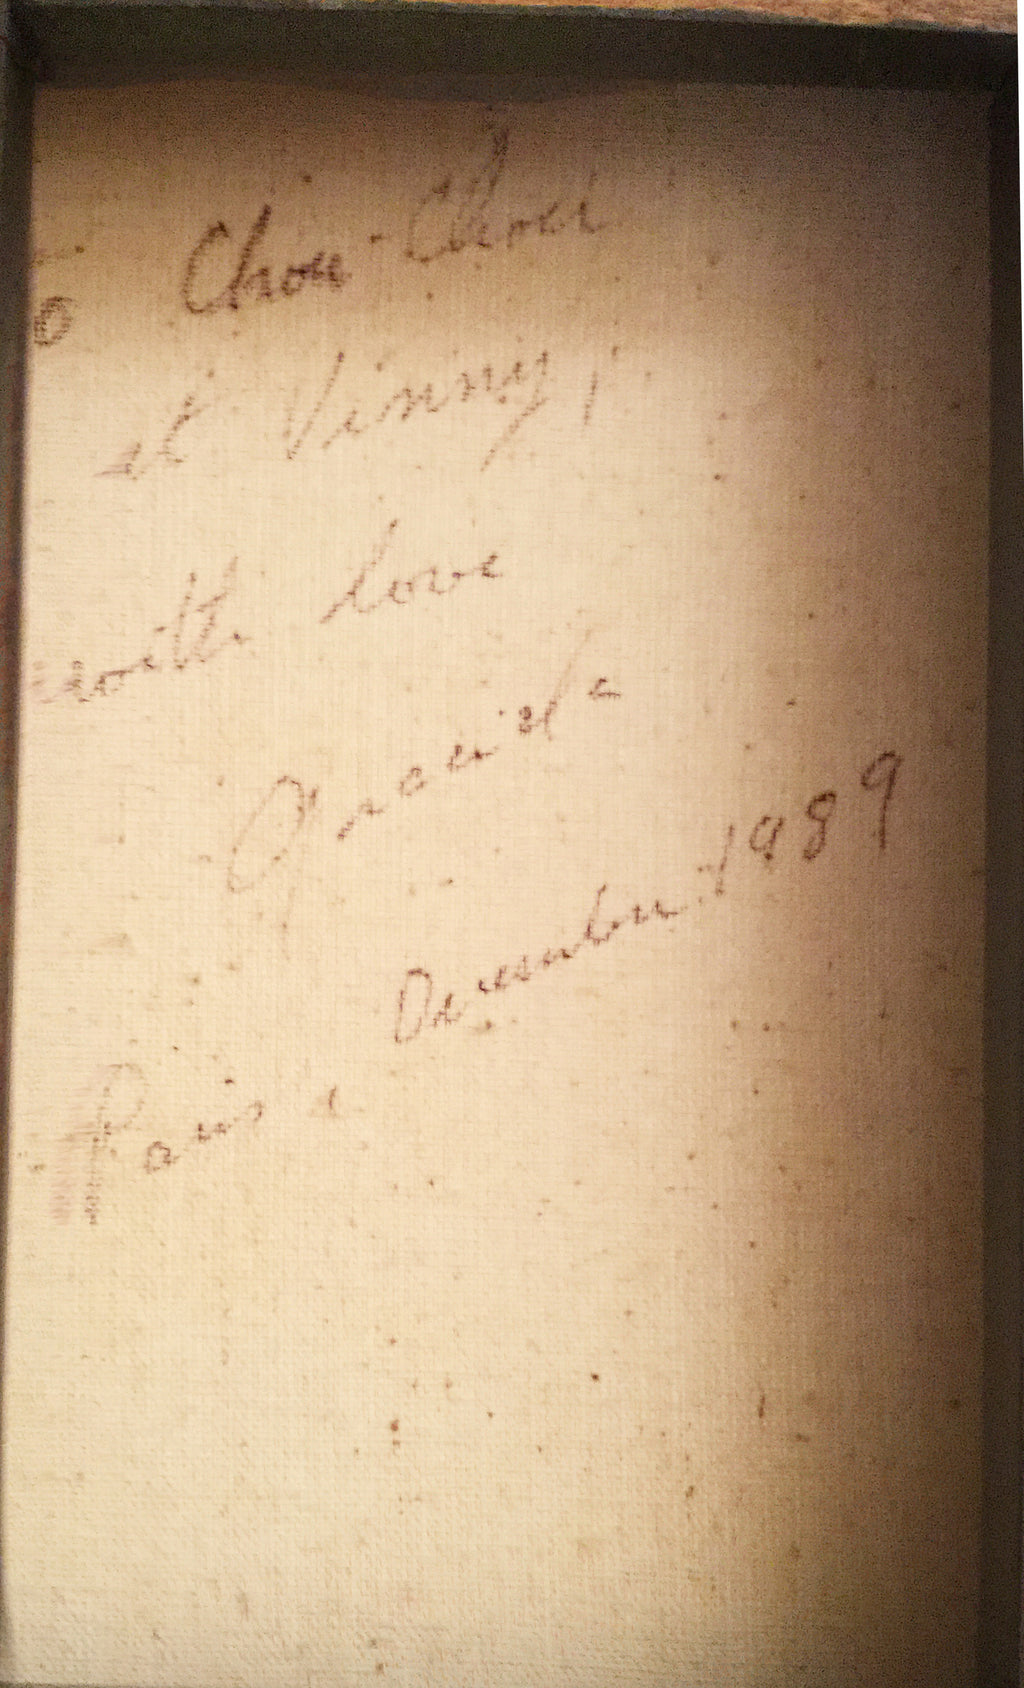 o Chou-Chou
et Vinny,
with love
December 1989
Paris